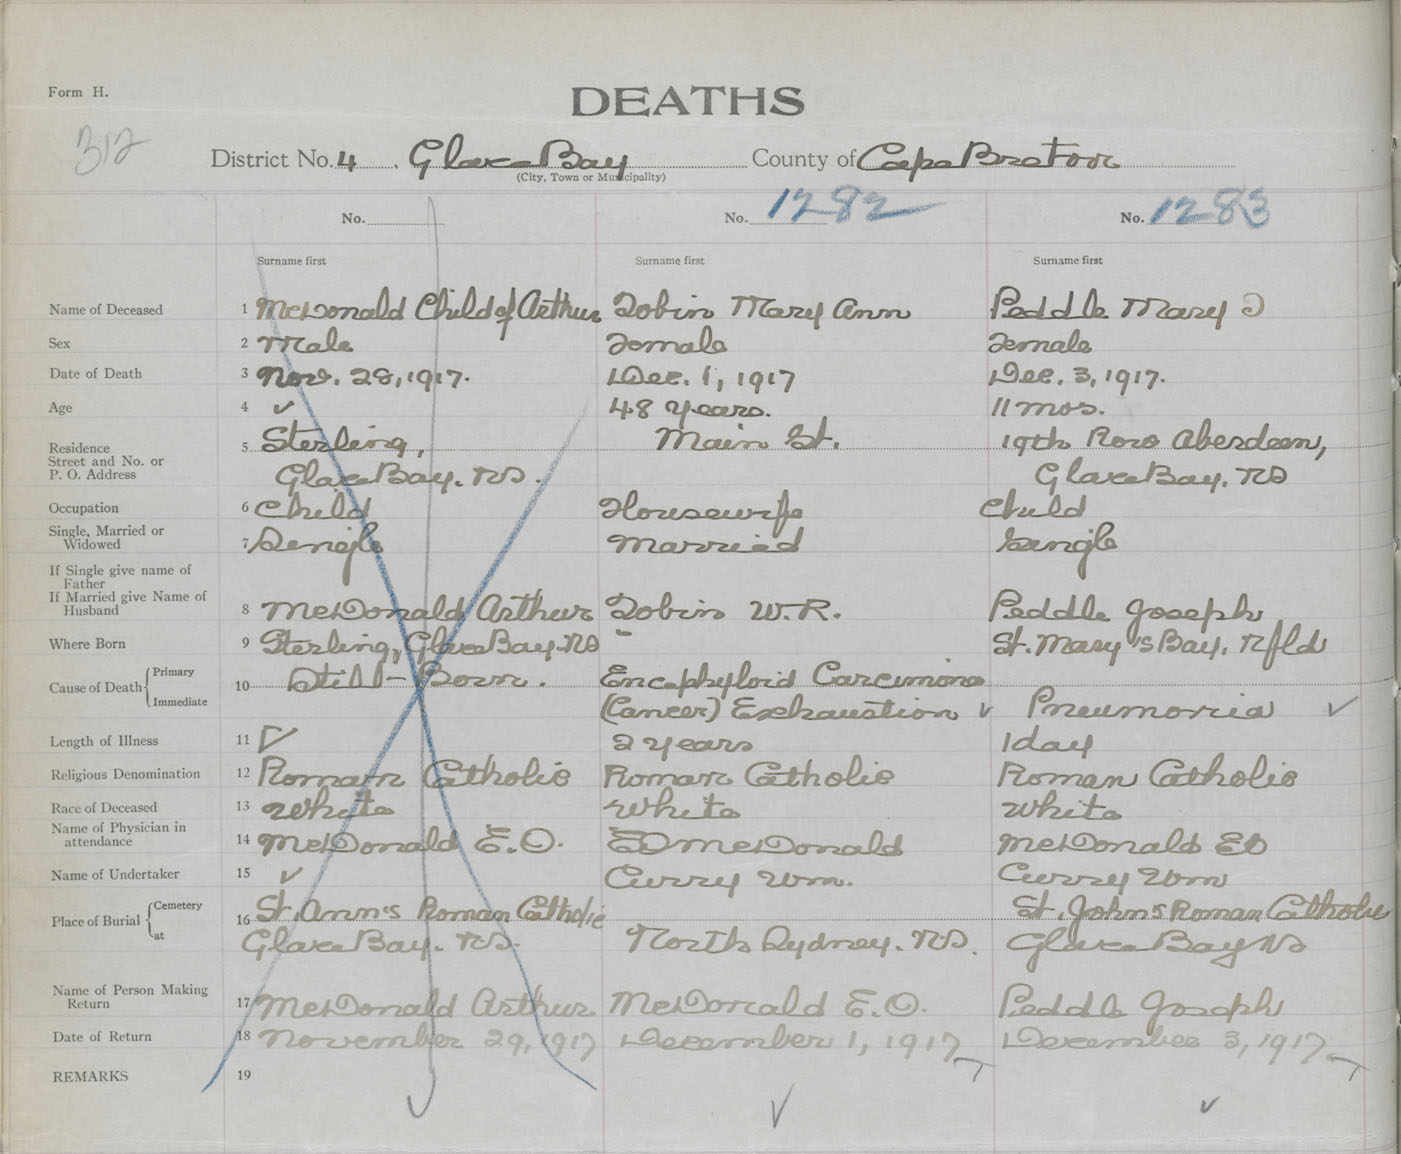 Form H.
DEATHS
312
District No. 4 Glace Bay County of Cape Breton
(City, Town or Municipality)
No. No. 1282 No. 1283
Surname first Surname first Surname first
Name of Deceased 1 McDonald Child of Arthur Tobin Mary Ann Peddle Mary J
Sex 2 Male Female Female
Date of Death 3 Nov. 28, 1917. Dec. 1, 1917 Dec. 3, 1917.
Age 4 ✓ 48 years. 11 mos.
Residence 5 Sterling, Main St. 19th Row Aberdeen,
Street and No. or
P. O. Address Glace Bay. NS. Glace Bay. NS
Occupation 6 Child Housewife Child
Single, Married or
Widowed 7 Single Married Single
If Single give name of
Father
If Married give Name of
Husband 8 McDonald Arthur Tobin W. R. Peddle Joseph
Where Born 9 Sterling, Glace Bay. NS - St. Mary's Bay, Nfld
Cause of Death Primary 10 Still-Born. Encaphyloid Carcinoma
Immediate (Cancer) Exhaustion ✓ Pneumonia ✓
Length of Illness 11 ✓ 2 years 1 day
Religious Denomination 12 Roman Catholic Roman Catholic Roman Catholic
Race of Deceased 13 White White White
Name of Physician in
attendance 14 McDonald E.O. EO McDonald McDonald EO
Name of Undertaker 15 ✓ Curry Wm. Curry Wm
Place of Burial Cemetery 16 St. Ann's Roman Catholic St. John's Roman Catholic
at Glace Bay. NS. North Sydney. NS. Glace Bay NS
Name of Person Making
Return 17 McDonald Arthur McDonald E.O. Peddle Joseph
Date of Return 18 November 29, 1917 December 1, 1917 December 3, 1917
REMARKS 19
✓ ✓